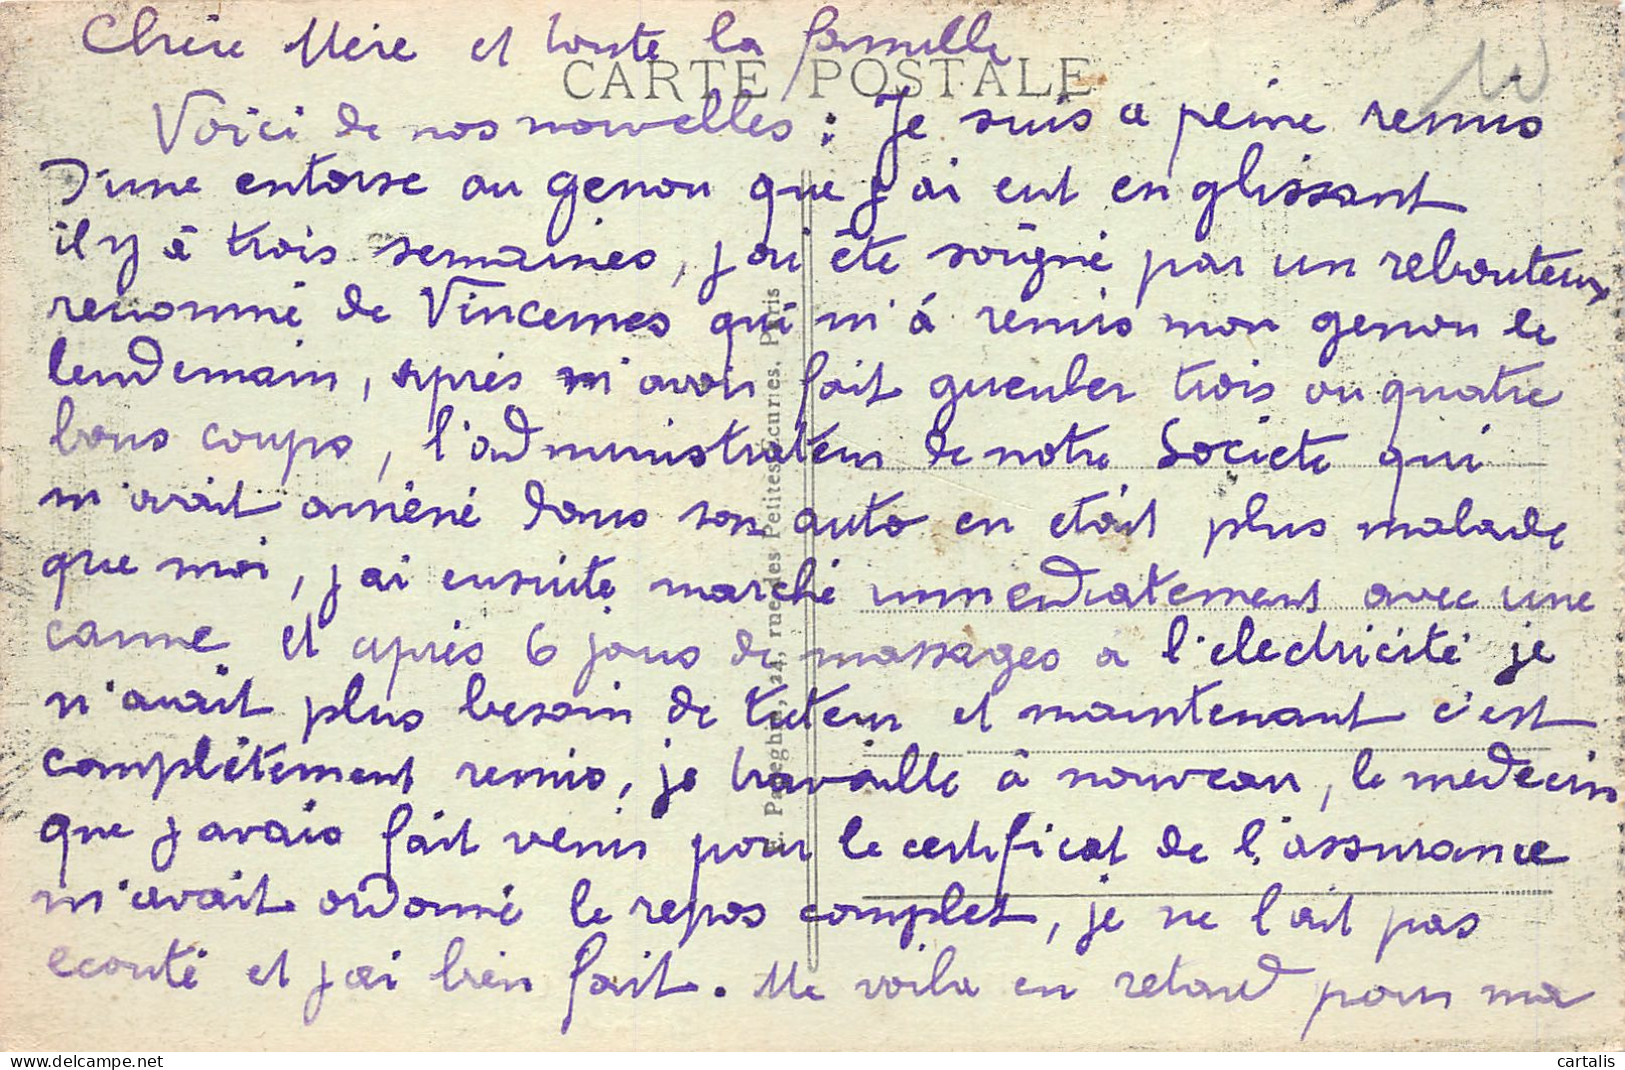 Chère Mère et toute la famille
CARTE POSTALE
Voici de nos nouvelles : Je suis a peine remis
D'une entorse au genou que j'ai eut en glissant
il y à trois semaines, j'ai été soigné par un rebouteux
renommé de Vincennes qui m'à remis mon genou le
lendemain, après m'avoir fait gueuler trois ou quatre
bons coups, l'administrateur de notre Societe qui
m'avait améné dans son auto en etait plus malade
que moi, j'ai ensuite marché immediatement avec une
canne et après 6 jours de massages à l'electricité je
n'avait plus besoin de tuteur et maintenant c'est
complètement remis, je travaille à nouveau, le medecin
que j'avais fait venir pour le certificat de l'assurance
m'avait ordonné le repos complet, je ne l'ait pas
ecouté et j'ai bien fait. Me voila en retard pour ma
rue des Petites-Ecuries, Paris
cartalis